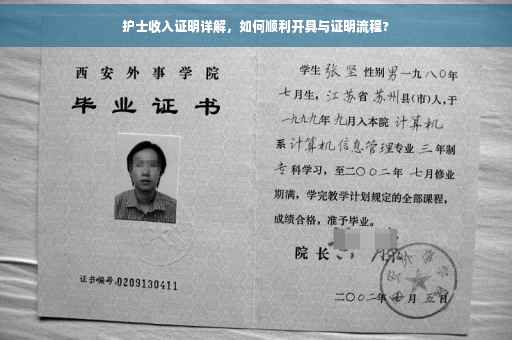 护士收入证明详解，如何顺利开具与证明流程？
西安外事学院
毕业证书
证书编号:0209130411
学生 张坚 性别 男 一九八〇年
七月生，江苏省苏州县(市)人，于
一九九九年九月入本院 计算机
系 计算机信息管理 专业 三 年制
专科学习，至二〇〇二年 七月修业
期满，学完教学计划规定的全部课程，
成绩合格，准予毕业。
院长
二〇〇二年 月五日